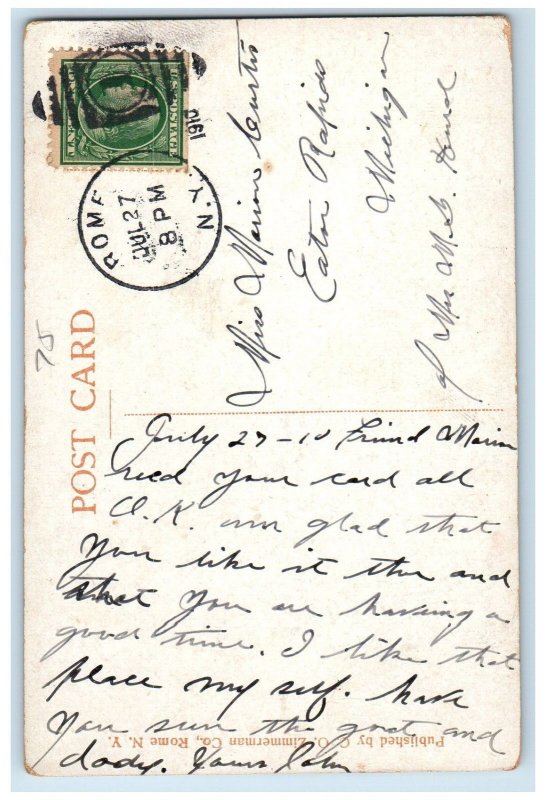 U.S. POSTAGE
ROME
N.Y.
JUL 27
8 PM
1910
Miss Marion Curtis
Eaton Rapids
Michigan
of Mrs M. D.
75
POST CARD
July 27-10 Friend Marion
recd your card all
O.K. am glad that
you like it ther and
that you are having a
good time. I like that
place my self. have
you seen the goat and
dody. Yours John
Published by C. O. Zimmerman Co., Rome N. Y.